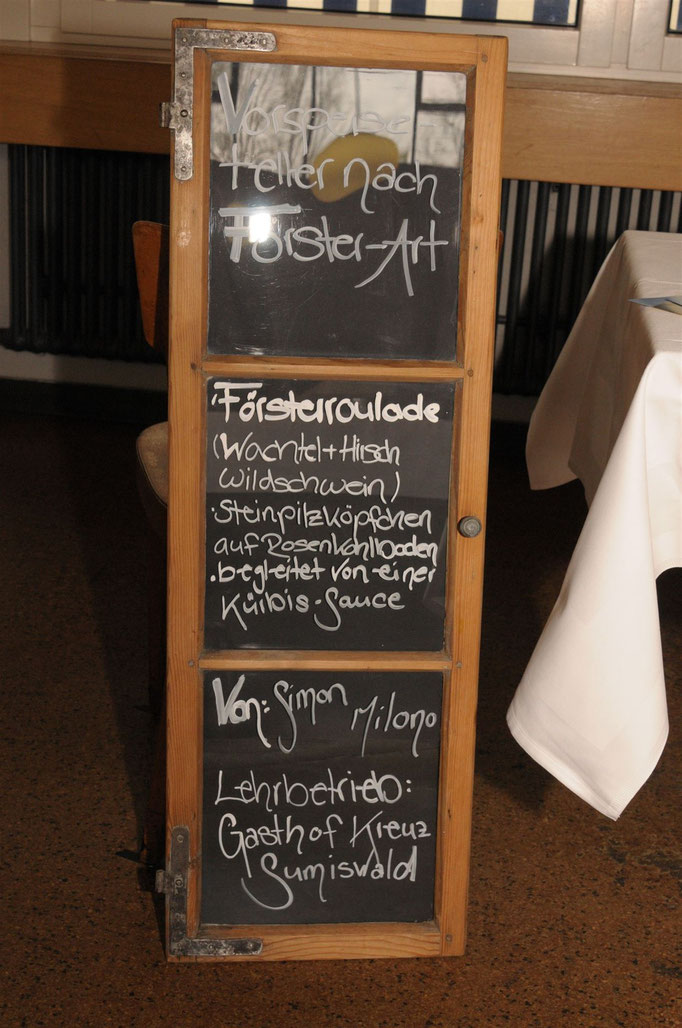 Vorspeise-
teller nach
Förster-Art
Försterroulade
(Wachtel+Hirsch
Wildschwein)
·Steinpilzköpfchen
auf Rosenkohlboden
·begleitet von einer
Kürbis-Sauce
Von: Simon Milono
Lehrbetrieb:
Gasthof Kreuz
Sumiswald